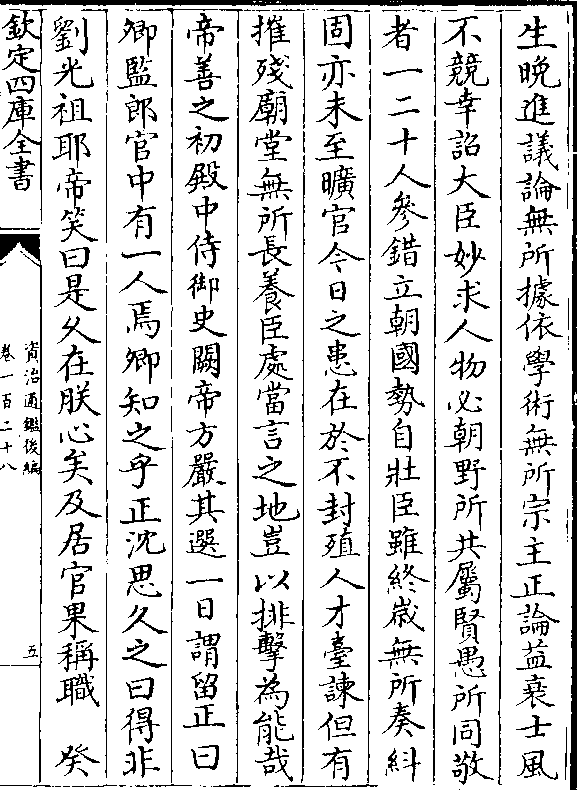 生晚進議論無所據依學術無所宗主正論益衰士風
不競幸詔大臣妙求人物必朝野所共屬賢愚所同敬
者一二十人參錯立朝國勢自壯臣雖終歲無所奏糾
固亦未至曠官今日之患在於不封殖人才臺諫但有
摧殘廟堂無所長養臣處當言之地豈以排擊為能哉
帝善之初殿中侍御史闕帝方嚴其選一日謂留正曰
卿監郎官中有一人焉卿知之乎正沈思久之曰得非
劉光祖耶帝笑曰是久在朕心矣及居官果稱職　癸
欽定四庫全書
資治通鑑後編
卷一百二十八
五